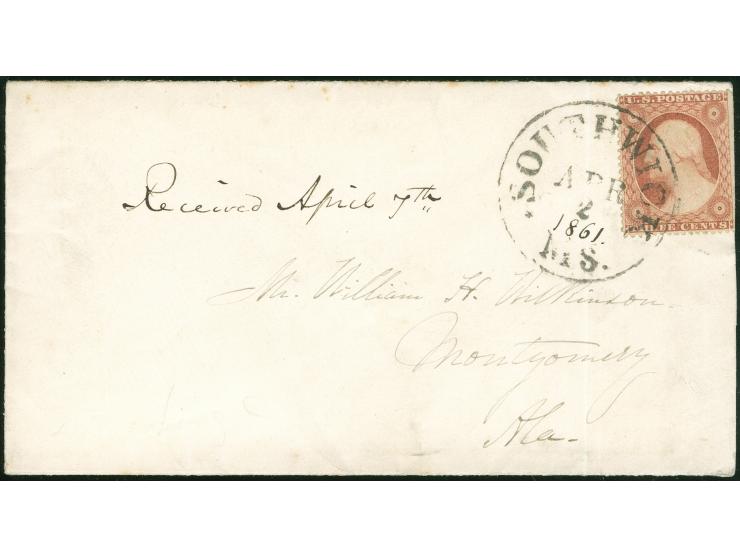 U.S. POSTAGE
SOUTHWICK
APR
2
1861.
MS.
CENTS
Received April 7th
Mr. William H. Wilkinson.
Montgomery
Ala-